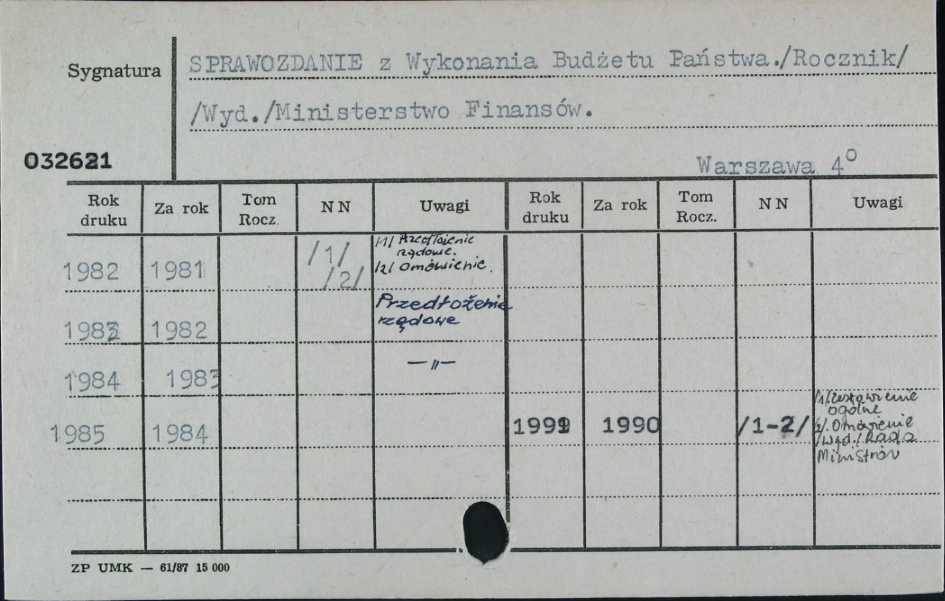 Sygnatura
SPRAWOZDANIE z Wykonania Budżetu Państwa./Rocznik/
/Wyd./Ministerstwo Finansów.
032621
Warszawa 4o
Rok druku Za rok Tom Rocz. NN Uwagi Rok druku Za rok Tom Rocz. NN Uwagi
1982 1981 /1/ /1/ Przedłożenie rządowe.
/2/ /2/ Omówienie.
1983 1982 Przedłożenie rządowe
1984 1983 —〃—
1985 1984
1991 1990 /1-2/ /1/Zestawienie ogólne
/2/. Omówienie
/Wyd./Rada Ministrów
ZP UMK — 61/87 15 000